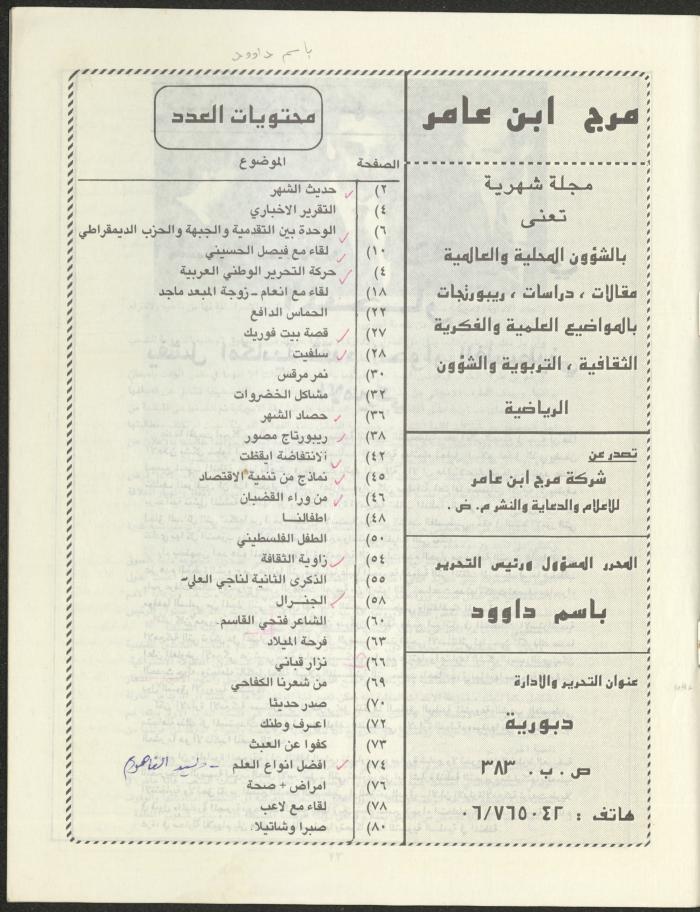 باسم داوود
مرج ابن عامر
مجلة شهرية
تعنى
بالشؤون المحلية والعالمية
مقالات ، دراسات ، ريبورتجات
بالمواضيع العلمية والفكرية
الثقافية ، التربوية والشؤون
الرياضية
تصدر عن
شركة مرج ابن عامر
للاعلام والدعاية والنشر م . ض .
المحرر المسؤول ورئيس التحرير
باسم داوود
عنوان التحرير والادارة
دبورية
ص . ب . ٣٨٣
هاتف : ٠٦/٧٦٥٠٤٢
محتويات العدد
الصفحة الموضوع
٢) حديث الشهر
٤) التقرير الاخباري
٦) الوحدة بين التقدمية والجبهة والحزب الديمقراطي
١٠) لقاء مع فيصل الحسيني
٤) حركة التحرير الوطني العربية
١٨) لقاء مع انعام - زوجة المبعد ماجد
٢٢) الحماس الدافع
٢٧) قصة بيت فوريك
٢٨) سلفيت
٣٠) نمر مرقس
٣٢) مشاكل الخضروات
٣٦) حصاد الشهر
٣٨) ريبورتاج مصور
٤٢) الانتفاضة ايقظت
٤٥) نماذج من تنمية الاقتصاد
٤٦) من وراء القضبان
٤٨) اطفالنا
٥٠) الطفل الفلسطيني
٥٤) زاوية الثقافة
٥٥) الذكرى الثانية لناجي العلي
٥٨) الجنرال
٦٠) الشاعر فتحي القاسم
٦٣) فرحة الميلاد
٦٦) نزار قباني
٦٩) من شعرنا الكفاحي
٧٠) صدر حديثا
٧٢) اعرف وطنك
٧٣) كفوا عن العبث
٧٤) افضل انواع العلم - وليد الفاهوم
٧٦) امراض + صحة
٧٨) لقاء مع لاعب
٨٠) صبرا وشاتيلا